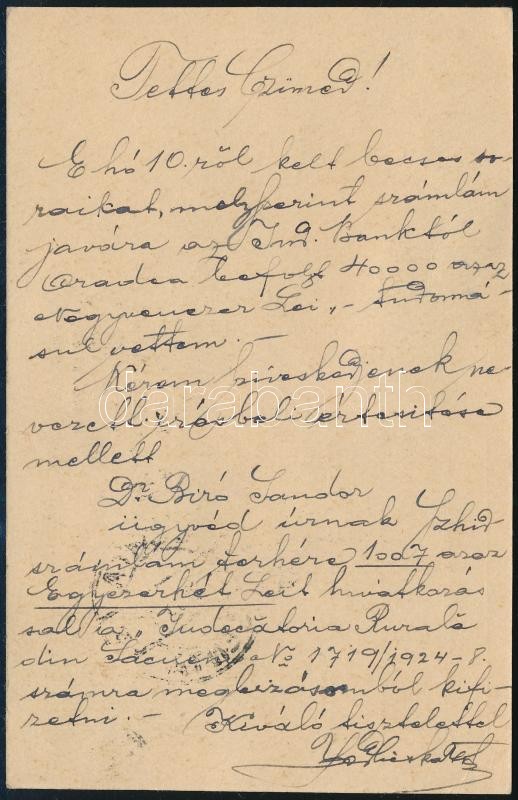 Tettes Czimed!
E hó 10.ről kelt becses so-
raikat, melyszerint számlám
javára az Ind. Banktól
Oradea befolyt 40000 azaz
Negyvenezer Lei „- tudomá-
sul vettem. -
Kérem sziveskedjenek ne-
vezett irásbeli értesitése
mellett
Dr. Biró Sandor
ügyvéd úrnak
számlám terhére 1007 azaz
Egyezerhét Leit hivatkozás
sal a „Judecătoria Rurală
din Săcueni No 1719/1924-8.
számra megbizásomból kifi-
zetni. - Kiváló tisztelettel
darabanth